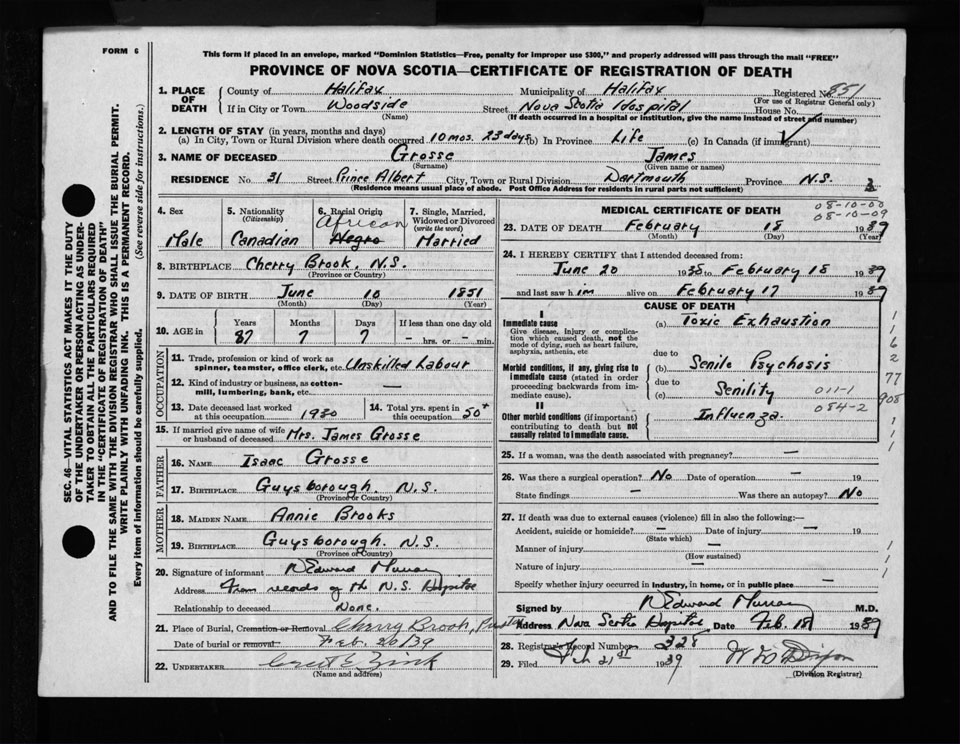 FORM 6
This form if placed in an envelope, marked "Dominion Statistics—Free, penalty for improper use $300," and properly addressed will pass through the mail "FREE"
PROVINCE OF NOVA SCOTIA—CERTIFICATE OF REGISTRATION OF DEATH
SEC. 46—VITAL STATISTICS ACT MAKES IT THE DUTY
OF THE UNDERTAKER OR PERSON ACTING AS UNDER-
TAKER TO OBTAIN ALL THE PARTICULARS REQUIRED
IN THE "CERTIFICATE OF REGISTRATION OF DEATH"
AND TO FILE THE SAME WITH THE DIVISION REGISTRAR WHO SHALL ISSUE THE BURIAL PERMIT.
WRITE PLAINLY WITH UNFADING INK. THIS IS A PERMANENT RECORD.
Every item of information should be carefully supplied. (See reverse side for instructions.)
1. PLACE OF DEATH
County of Halifax Municipality of Halifax Registered No. 851
(For use of Registrar General only)
If in City or Town Woodside Street Nova Scotia Hospital House No.
(Name) (If death occurred in a hospital or institution, give the name instead of street and number)
2. LENGTH OF STAY (in years, months and days)
(a) In City, Town or Rural Division where death occurred 10 mos. 23 days (b) In Province Life (c) In Canada (if immigrant)
3. NAME OF DECEASED Grosse James
(Surname) (Given name or names)
RESIDENCE No. 31 Street Prince Albert City, Town or Rural Division Dartmouth Province N.S.
(Residence means usual place of abode. Post Office Address for residents in rural parts not sufficient)
4. Sex Male
5. Nationality (Citizenship) Canadian
6. Racial Origin African Negro
7. Single, Married, Widowed or Divorced (write the word) Married
8. BIRTHPLACE Cherry Brook, N.S.
(Province or Country)
9. DATE OF BIRTH June 10 1851
(Month) (Day) (Year)
10. AGE in Years 87 Months 7 Days 7 If less than one day old – hrs. or – min.
OCCUPATION
11. Trade, profession or kind of work as spinner, teamster, office clerk, etc. Unskilled Labour
12. Kind of industry or business, as cotton-mill, lumbering, bank, etc. —
13. Date deceased last worked at this occupation 1930
14. Total yrs. spent in this occupation 50+
15. If married give name of wife or husband of deceased Mrs. James Grosse
FATHER
16. NAME Isaac Grosse
17. BIRTHPLACE Guysborough. N.S.
(Province or Country)
MOTHER
18. MAIDEN NAME Annie Brooks
19. BIRTHPLACE Guysborough. N.S.
(Province or Country)
20. Signature of informant N Edward Murray
Address From records of the N.S. Hospital
Relationship to deceased None.
21. Place of Burial, Cremation or Removal Cherry Brook,
Date of burial or removal Feb. 20/39
22. UNDERTAKER Zink
(Name and address)
MEDICAL CERTIFICATE OF DEATH
08-10-00
08-10-09
23. DATE OF DEATH February 18 1939
(Month) (Day) (Year)
24. I HEREBY CERTIFY that I attended deceased from:
June 20 1938 to February 18 1939
and last saw him alive on February 17 1939
CAUSE OF DEATH
I
Immediate cause
Give disease, injury or complication which caused death, not the mode of dying, such as heart failure, asphyxia, asthenia, etc
(a) Toxic Exhaustion
due to
Morbid conditions, if any, giving rise to immediate cause (stated in order proceeding backwards from immediate cause).
(b) Senile Psychosis
due to
(c) Senility
011-1
084-2
II
Other morbid conditions (if important) contributing to death but not causally related to immediate cause.
Influenza.
1
1
6
2
77
908
1
1
1
25. If a woman, was the death associated with pregnancy? —
26. Was there a surgical operation? No Date of operation — 19
State findings — Was there an autopsy? No
27. If death was due to external causes (violence) fill in also the following:—
Accident, suicide or homicide? — Date of injury — 19
(State which)
Manner of injury —
(How sustained)
Nature of injury —
Specify whether injury occurred in industry, in home, or in public place —
Signed by N Edward Murray M.D.
Address Nova Scotia Hospital Date Feb. 18 1939
28. Registrar's Record Number 228
29. Filed Feb 21st 1939 Dixon
(Division Registrar)